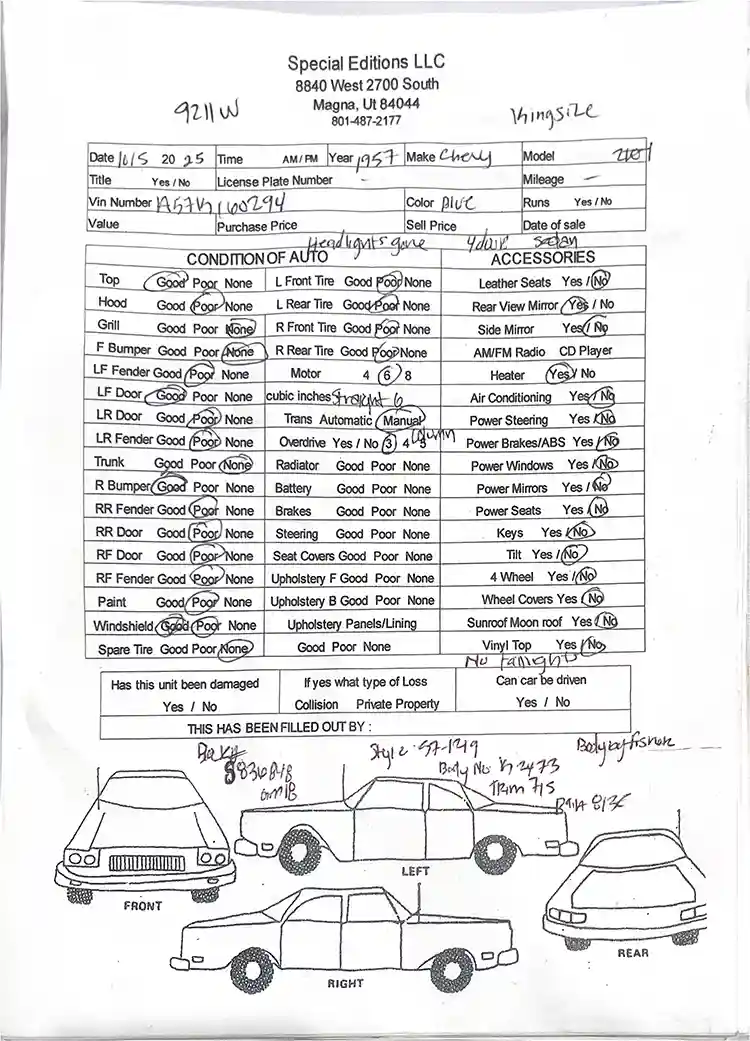 Special Editions LLC
8840 West 2700 South
Magna, Ut 84044
801-487-2177
9211W
Kingsize
Date 10/5 2025 Time AM / PM Year 1957 Make Chevy Model 210
Title Yes / No License Plate Number - Mileage -
Vin Number A57K160294 Color Blue Runs Yes / No
Value Purchase Price Sell Price Date of sale
Headlights gone 4 door sedan
CONDITION OF AUTO ACCESSORIES
Top Good Poor None L Front Tire Good Poor None Leather Seats Yes / No
Hood Good Poor None L Rear Tire Good Poor None Rear View Mirror Yes / No
Grill Good Poor None R Front Tire Good Poor None Side Mirror Yes / No
F Bumper Good Poor None R Rear Tire Good Poor None AM/FM Radio CD Player
LF Fender Good Poor None Motor 4 6 8 Heater Yes / No
LF Door Good Poor None cubic inches Straight 6 Air Conditioning Yes / No
LR Door Good Poor None Trans Automatic Manual Power Steering Yes / No
LR Fender Good Poor None Overdrive Yes / No 3 4 5 Column Power Brakes/ABS Yes / No
Trunk Good Poor None Radiator Good Poor None Power Windows Yes / No
R Bumper Good Poor None Battery Good Poor None Power Mirrors Yes / No
RR Fender Good Poor None Brakes Good Poor None Power Seats Yes / No
RR Door Good Poor None Steering Good Poor None Keys Yes / No
RF Door Good Poor None Seat Covers Good Poor None Tilt Yes / No
RF Fender Good Poor None Upholstery F Good Poor None 4 Wheel Yes / No
Paint Good Poor None Upholstery B Good Poor None Wheel Covers Yes / No
Windshield Good Poor None Upholstery Panels/Lining Sunroof Moon roof Yes / No
Spare Tire Good Poor None Good Poor None Vinyl Top Yes / No
No
Has this unit been damaged If yes what type of Loss Can car be driven
Yes / No Collision Private Property Yes / No
THIS HAS BEEN FILLED OUT BY :
Style 57-1219 Body by fisher
Body No K 2473
Trim 715
FRONT
LEFT
RIGHT
REAR